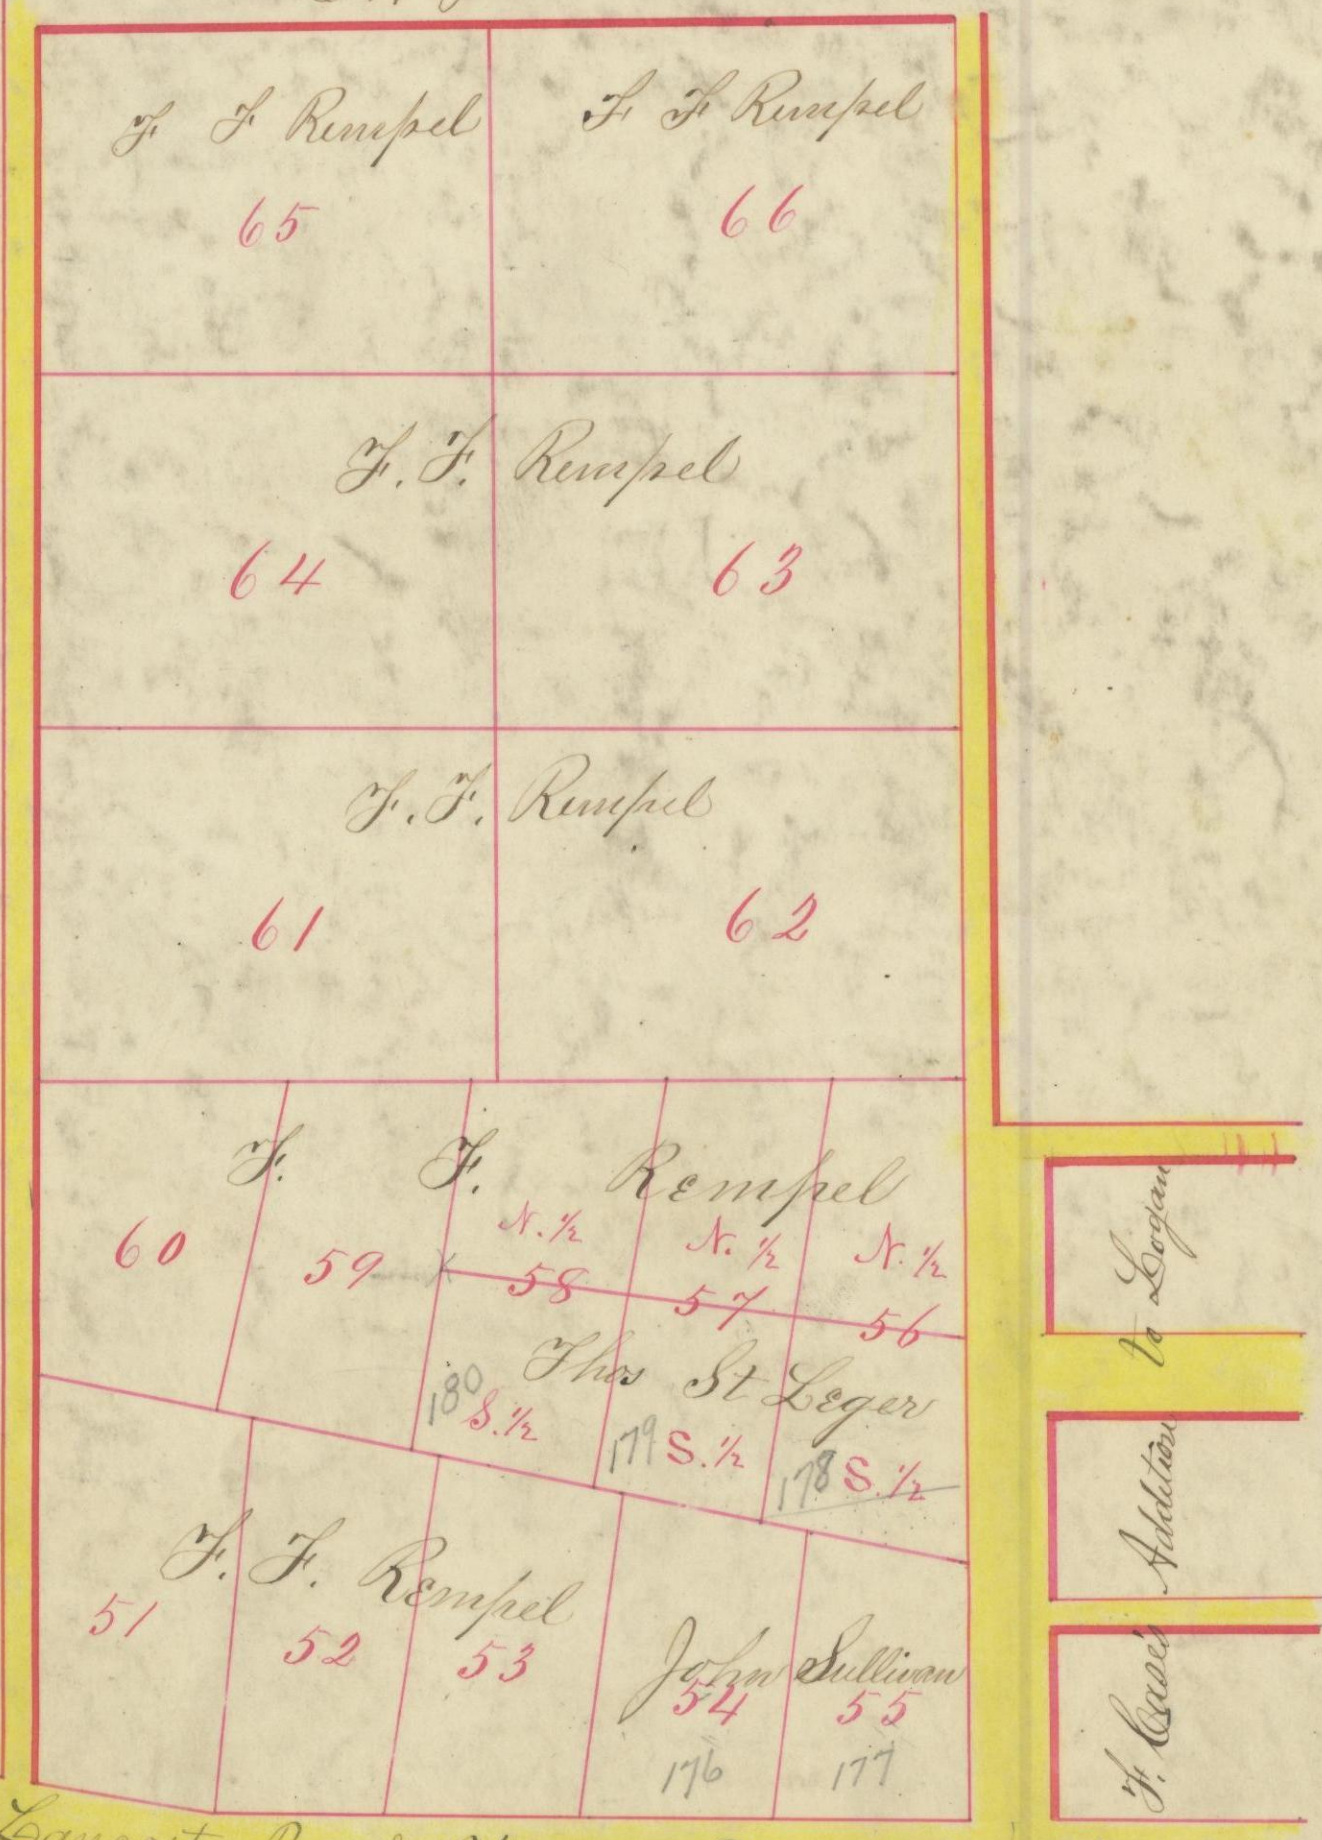 F F Rempel
65
F F Rempel
66
F. F. Rempel
64
63
F. F. Rempel
61
62
F. F. Rempel
60
59
N. 1/2
58
N. 1/2
57
N. 1/2
56
Thos St Leger
180
S. 1/2
179
S. 1/2
178
S. 1/2
F. F. Rempel
51
52
53
John Sullivan
54
55
176
177
F. Case's Addition to Logan